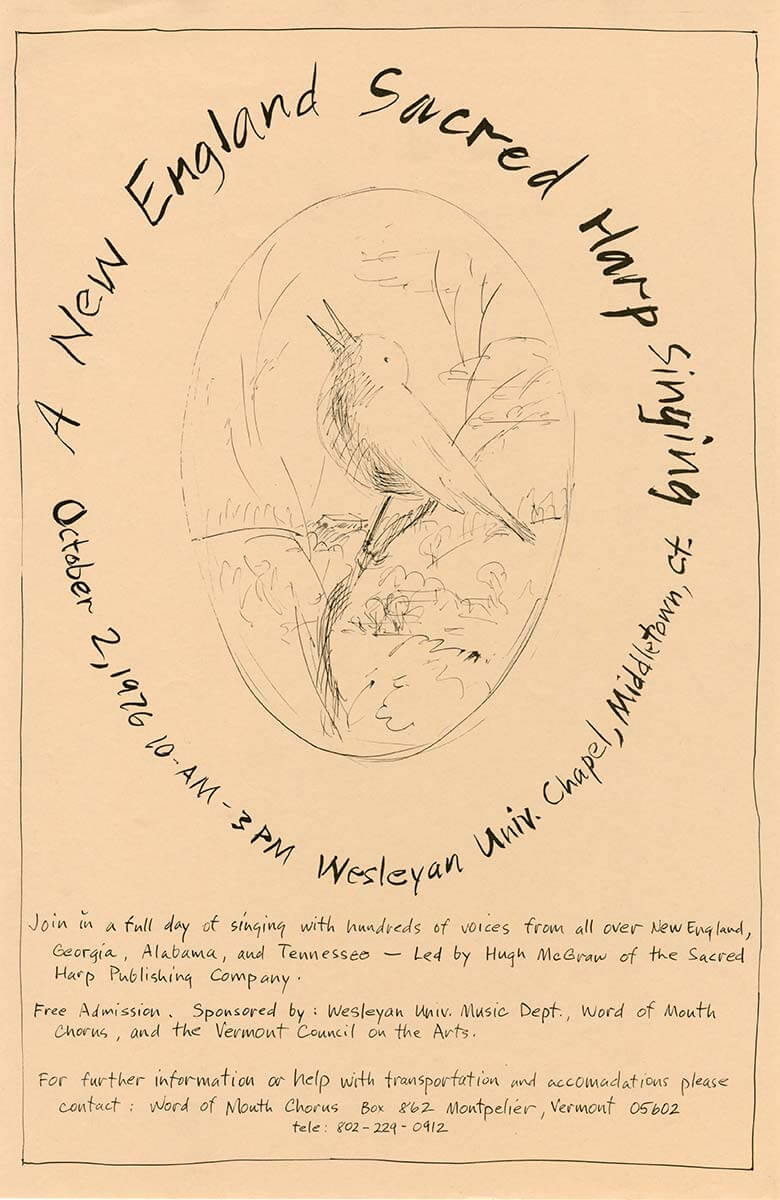 A New England Sacred Harp Singing
October 2, 1976 10-AM-3PM Wesleyan Univ. Chapel, Middletown, Ct
Join in a full day of singing with hundreds of voices from all over New England,
Georgia, Alabama, and Tennessee — Led by Hugh McGraw of the Sacred
Harp Publishing Company.
Free Admission. Sponsored by: Wesleyan Univ. Music Dept., Word of Mouth
Chorus, and the Vermont Council on the Arts.
For further information or help with transportation and accomadations please
contact: Word of Mouth Chorus Box 862 Montpelier, Vermont 05602
tele: 802-229-0912